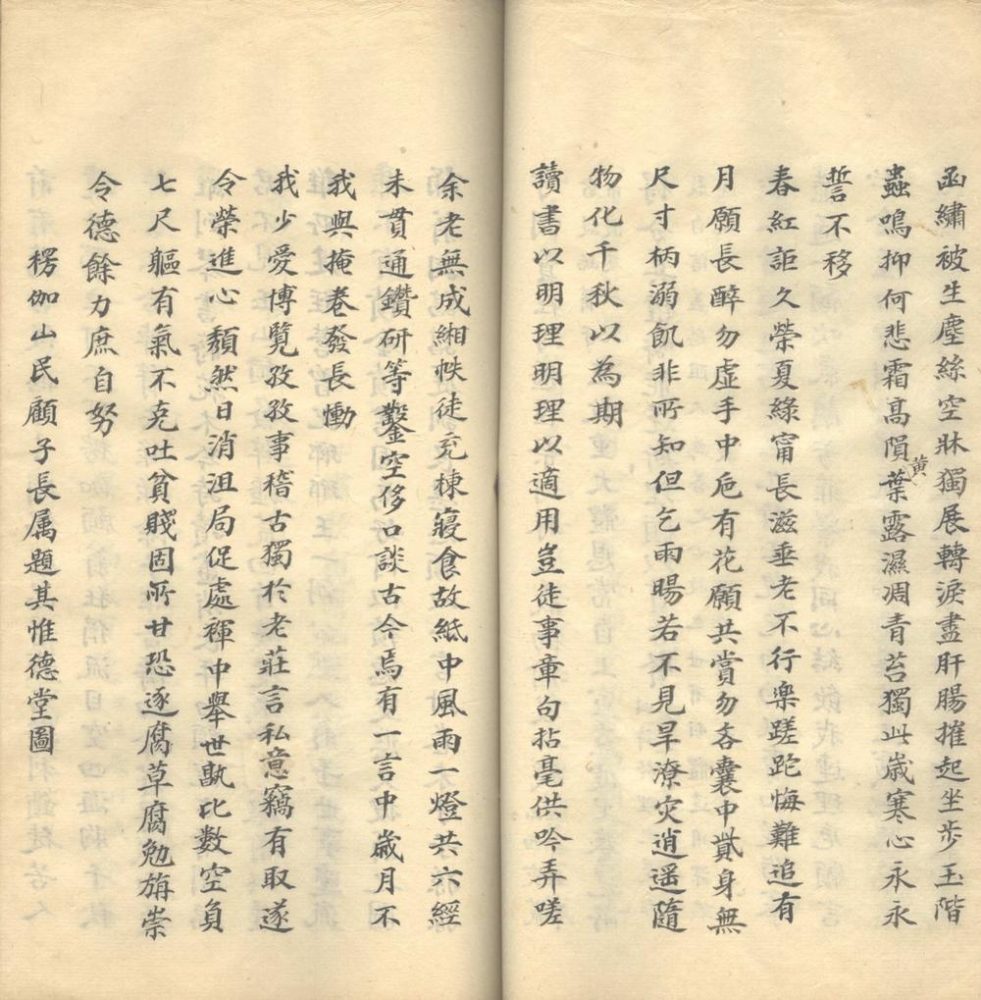 函繡被生塵絲空牀獨展轉淚盡肝腸摧起坐步玉階
蟲鳴抑何悲霜高隕黄葉露濕凋青苔獨此歲寒心永永
誓不移
春紅詎久榮夏綠甯長滋垂老不行樂蹉跎悔難追有
月願長醉勿虛手中卮有花願共賞勿吝囊中貲身無
尺寸柄溺飢非所知但乞雨暘若不見旱潦灾逍遥隨
物化千秋以為期
讀書以明理明理以適用豈徒事章句拈毫供吟弄嗟
余老無成緗帙徒充棟寢食故紙中風雨一燈共六經
未貫通鑽研等鑿空侈口談古今焉有一言中歲月不
我與掩卷發長慟
我少愛博覽孜孜事稽古獨於老莊言私意竊有取遂
令榮進心頹然日消沮局促處褌中舉世孰比數空負
七尺軀有氣不克吐貧賤固所甘恐逐腐草腐勉旃崇
令德餘力庶自努
楞伽山民顧子長属題其惟德堂圖